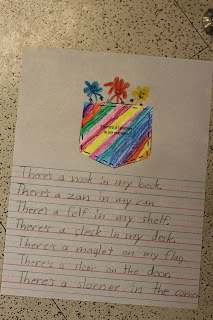 There's a
in my
There's a nook in my book.
There's a zan in my can.
There's a felf in my shelf.
There's a in my desk.
There's a maglet on my flag
There's a on the door.
There's a slorner in the corner